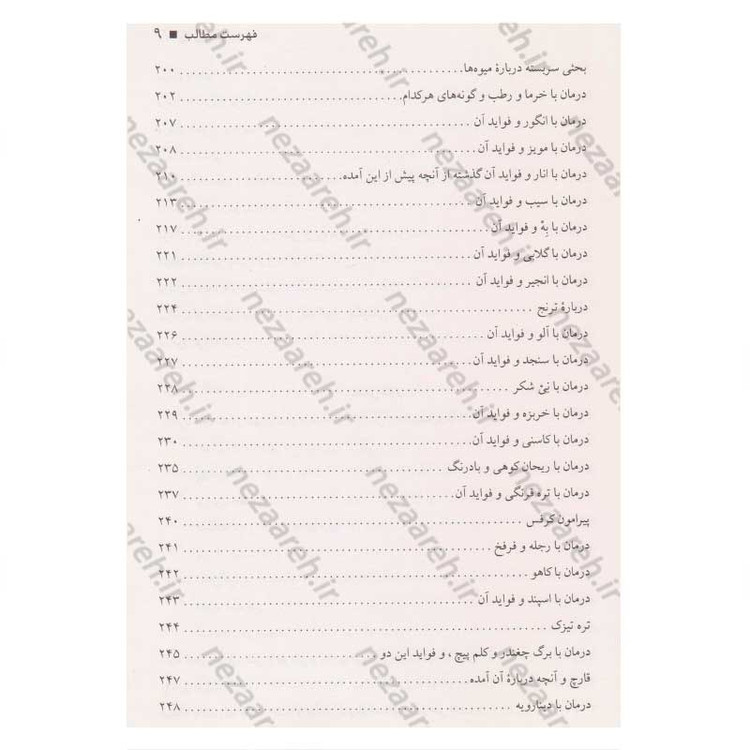 فهرست مطالب ■ ۹
بحثی سربسته دربارهٔ میوه‌ها ........ ۲۰۰
درمان با خرما و رطب و گونه‌های هرکدام ........ ۲۰۲
درمان با انگور و فواید آن ........ ۲۰۷
درمان با مویز و فواید آن ........ ۲۰۸
درمان با انار و فواید آن گذشته از آنچه پیش از این آمده ........ ۲۱۰
درمان با سیب و فواید آن ........ ۲۱۳
درمان با بِهْ و فواید آن ........ ۲۱۷
درمان با گلابی و فواید آن ........ ۲۲۱
درمان با انجیر و فواید آن ........ ۲۲۲
دربارهٔ ترنج ........ ۲۲۴
درمان با آلو و فواید آن ........ ۲۲۶
درمان با سنجد و فواید آن ........ ۲۲۷
درمان با نِیْ شکر ........ ۲۲۸
درمان با خربزه و فواید آن ........ ۲۲۹
درمان با کاسنی و فواید آن ........ ۲۳۰
درمان با ریحان کوهی و بادرنگ ........ ۲۳۵
درمان با تره فرنگی و فواید آن ........ ۲۳۷
پیرامون کرفس ........ ۲۴۰
درمان با رجله و فرفخ ........ ۲۴۱
درمان با کاهو ........ ۲۴۲
درمان با اسپند و فواید آن ........ ۲۴۳
تره تیزک ........ ۲۴۴
درمان با برگ چغندر و کلم پیچ ، و فواید این دو ........ ۲۴۵
قارچ و آنچه دربارهٔ آن آمده ........ ۲۴۷
درمان با دینارویه ........ ۲۴۸
nezaareh.ir